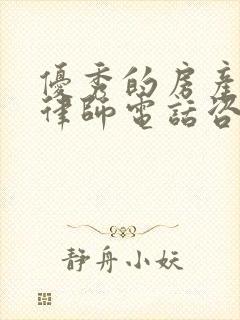 優秀的房產
律師電話咨
靜舟小妖